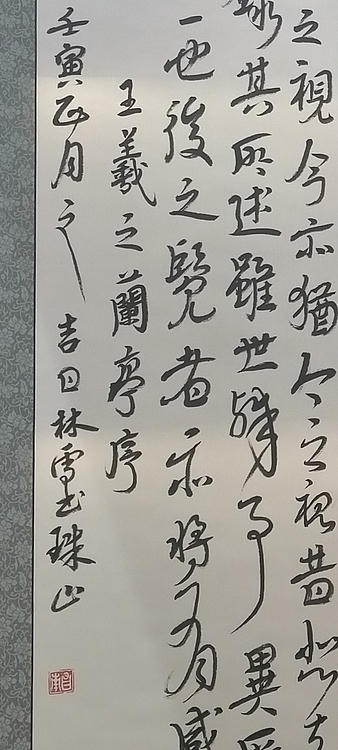 之視今亦猶今之視昔悲夫
錄其所述雖世殊事異所
一也後之覽者亦將有感
王羲之蘭亭序
壬寅正月之吉日林雪書珠山